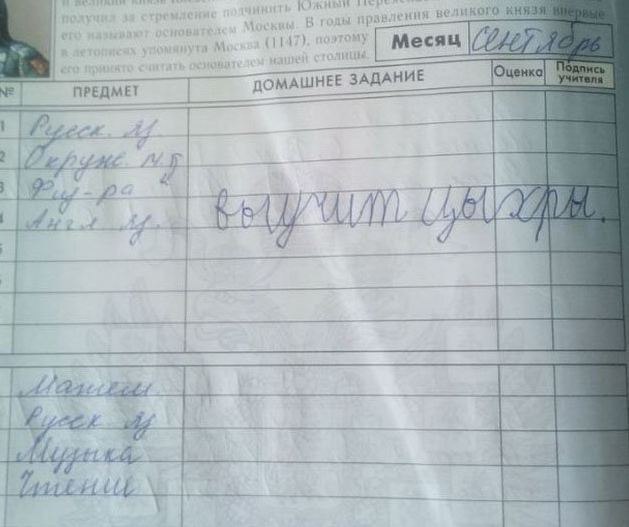 получил за стремление подчинить Южный
его называют основателем Москвы. В годы правления великого князя впервые
в летописях упомянута Москва (1147), поэтому
его принято считать основателем нашей столицы.
Месяц Сентябрь
№ ПРЕДМЕТ ДОМАШНЕЕ ЗАДАНИЕ Оценка Подпись учителя
1 Русск. яз.
2 Окруж. м.
3 Физ-ра
4 Англ яз. выучит цыхры.
Матем.
Русск яз
Музыка
Чтение